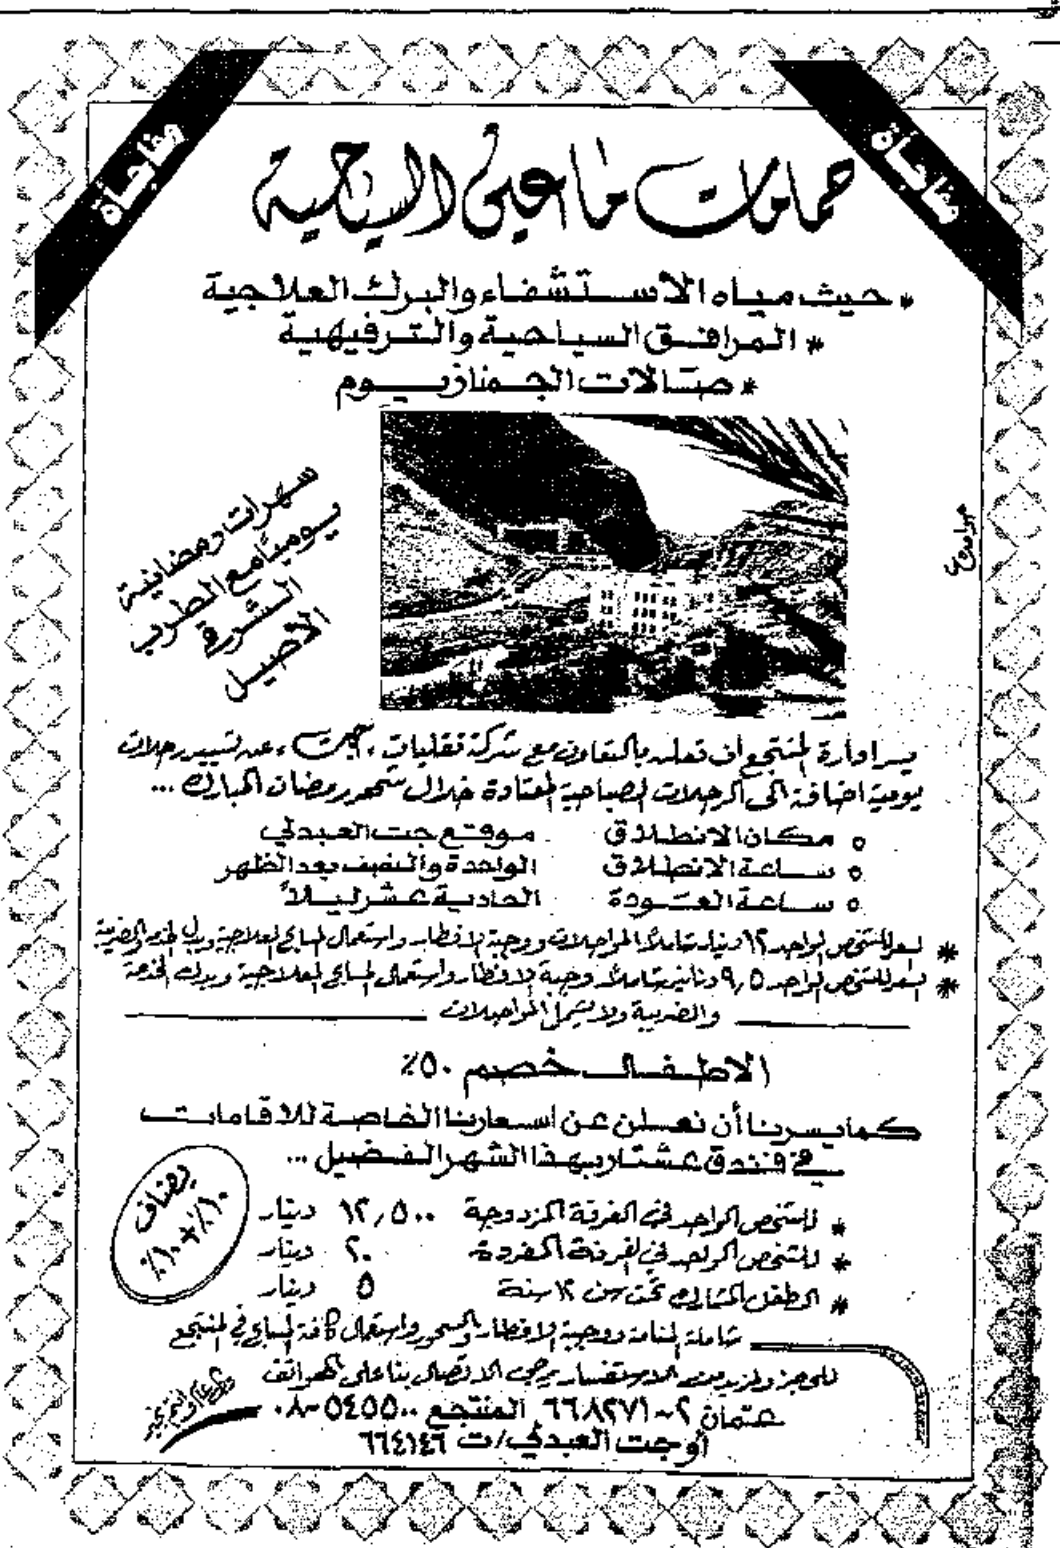 مفاجأة
مفاجأة
حمامات ماعين السياحية
* حيث مياه الاستشفاء والبرك العلاجية
* المرافق السياحية والترفيهية
* صالات الجمنازيوم
سهرات رمضانية
يومياً مع الطرب
الشرقي
الأصيل
يسر ادارة المنتجع أن تعلن بالتعاون مع شركة نقليات "جت" عن تسيير رحلات
يومية اضافة الى الرحلات الصباحية المعتادة خلال شهر رمضان المبارك ...
٥ مكان الانطلاق موقع جت العبدلي
٥ ساعة الانطلاق الواحدة والنصف بعد الظهر
٥ ساعة العودة الحادية عشر ليلاً
* السعر للشخص الواحد ١٢ دينار شاملاً المواصلات ووجبة الافطار واستعمال المسابح العلاجية وبدل الخدمة والضريبة
* السعر للشخص الواحد ٩,٥ دنانير شاملاً وجبة الافطار واستعمال المسابح العلاجية وبدل الخدمة
والضريبة ولا يشمل المواصلات
الاطفال خصم ٥٠٪
كما يسرنا أن نعلن عن اسعارنا الخاصة للاقامات
في فندق عشتار بهذا الشهر الفضيل ...
* للشخص الواحد في الغرفة المزدوجة ١٢,٥٠٠ دينار
* للشخص الواحد في الغرفة المفردة ٢٠ دينار
* الطفل المشارك تحت سن ١٢ سنة ٥ دينار
يضاف
١٠٪+١٠٪
شاملة المنامة ووجبة الافطار والسحور واستعمال كافة المسابح في المنتجع
للحجز ولمزيد من الاستفسار يرجى الاتصال بنا على الهواتف
عمان ٢-٦٦٨٢٧١ المنتجع ٥٤٥٥٠٠-٠٨
أو جت العبدلي/ت ٦٦٤١٤٦
وكل عام وانتم بخير